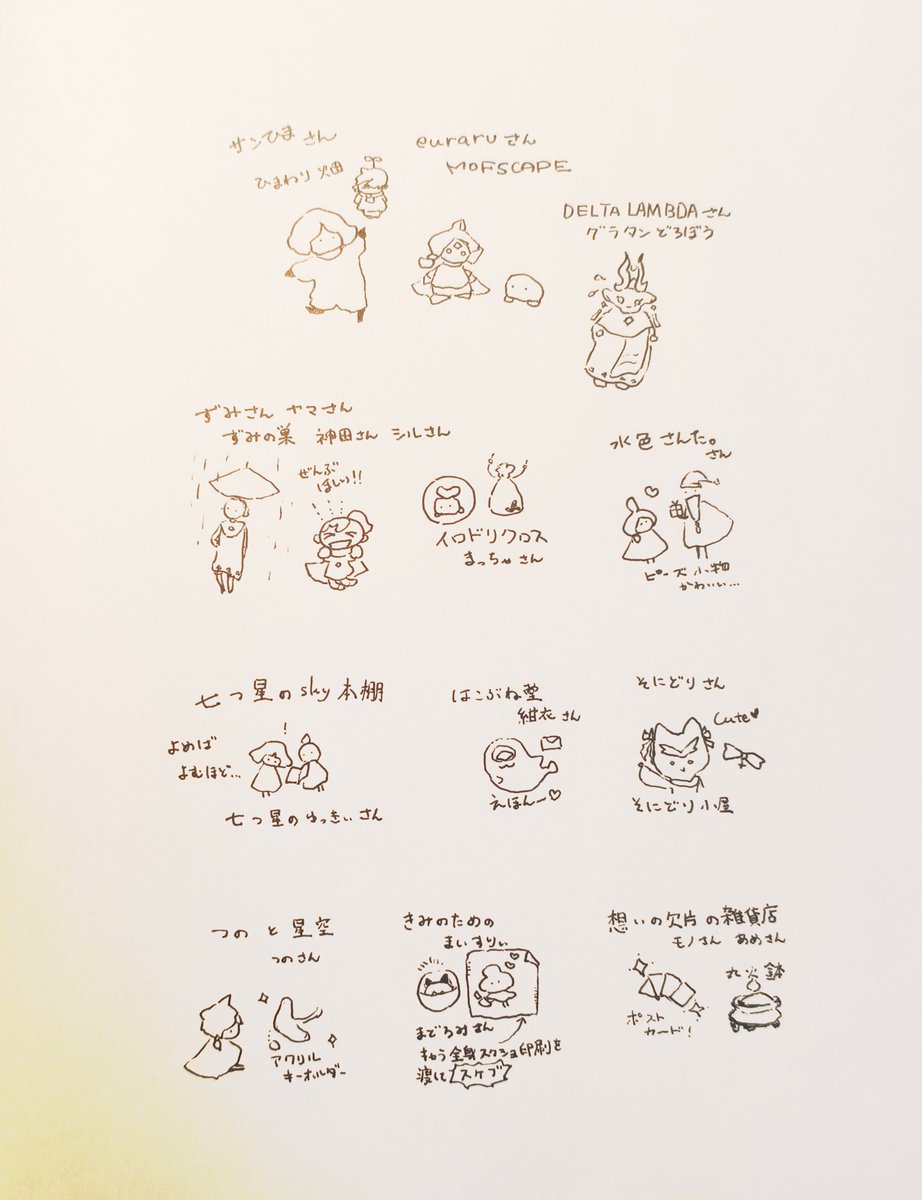 サンひまさん
ひまわり畑
euraruさん
MOFSCAPE
DELTA LAMBDAさん
グラタンどろぼう
ずみさん ヤマさん
ずみの巣 神田さん シルさん
ぜんぶ
ほしい!!
イロドリクロス
まっちゃさん
水色さんた。
さん
ビーズ小物
かわいい…
七つ星のsky本棚
よめば
よむほど…
七つ星のゆっきぃさん
はこぶね堂
紺衣さん
えほんー♡
そにどりさん
Cute♥
そにどり小屋
つのと星空
つのさん
アクリル
キーホルダー
きみのための
まいすりぃ
までるみさん
キャラ全身スクショ印刷を
渡してスケブ
想いの欠片の雑貨店
モノさん あめさん
ポスト
カード!
丸火鉢